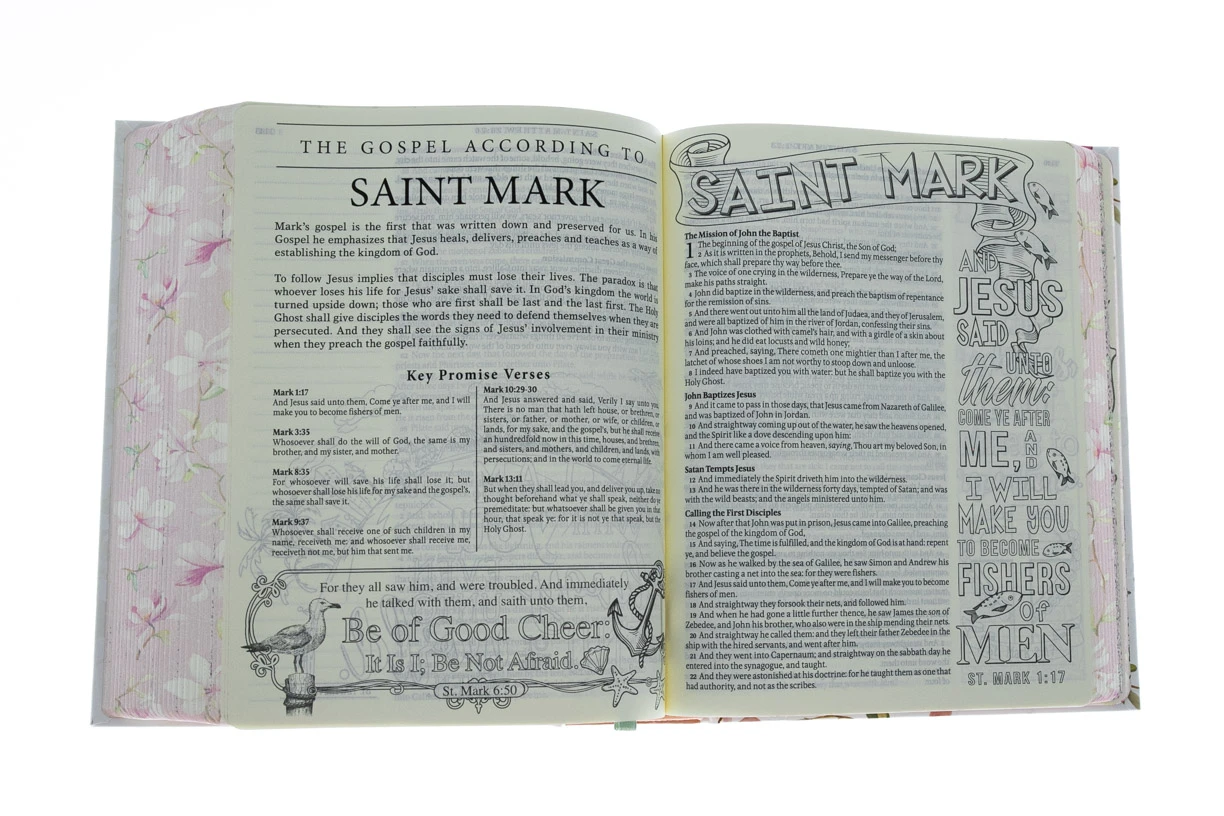 THE GOSPEL ACCORDING TO
SAINT MARK
Mark's gospel is the first that was written down and preserved for us. In his
Gospel he emphasizes that Jesus heals, delivers, preaches and teaches as a way of
establishing the kingdom of God.
To follow Jesus implies that disciples must lose their lives. The paradox is that
whoever loses his life for Jesus' sake shall save it. In God's kingdom the world is
turned upside down; those who are first shall be last and the last first. The Holy
Ghost shall give disciples the words they need to defend themselves when they are
persecuted. And they shall see the signs of Jesus' involvement in their ministry
when they preach the gospel faithfully.
Key Promise Verses
Mark 1:17
And Jesus said unto them, Come ye after me, and I will
make you to become fishers of men.
Mark 3:35
Whosoever shall do the will of God, the same is my
brother, and my sister, and mother.
Mark 8:35
For whosoever will save his life shall lose it; but
whosoever shall lose his life for my sake and the gospel's,
the same shall save it.
Mark 9:37
Whosoever shall receive one of such children in my
name, receiveth me: and whosoever shall receive me,
receiveth not me, but him that sent me.
Mark 10:29-30
And Jesus answered and said, Verily I say unto you,
There is no man that hath left house, or brethren, or
sisters, or father, or mother, or wife, or children, or
lands, for my sake, and the gospel's, but he shall receive
an hundredfold now in this time, houses, and brethren,
and sisters, and mothers, and children, and lands, with
persecutions; and in the world to come eternal life.
Mark 13:11
But when they shall lead you, and deliver you up, take no
thought beforehand what ye shall speak, neither do ye
premeditate: but whatsoever shall be given you in that
hour, that speak ye: for it is not ye that speak, but the
Holy Ghost.
For they all saw him, and were troubled. And immediately
he talked with them, and saith unto them,
Be of Good Cheer:
It Is I; Be Not Afraid.
St. Mark 6:50
SAINT MARK
The Mission of John the Baptist
1 The beginning of the gospel of Jesus Christ, the Son of God;
2 As it is written in the prophets, Behold, I send my messenger before thy
face, which shall prepare thy way before thee.
3 The voice of one crying in the wilderness, Prepare ye the way of the Lord,
make his paths straight.
4 John did baptize in the wilderness, and preach the baptism of repentance
for the remission of sins.
5 And there went out unto him all the land of Judaea, and they of Jerusalem,
and were all baptized of him in the river of Jordan, confessing their sins.
6 And John was clothed with camel's hair, and with a girdle of a skin about
his loins; and he did eat locusts and wild honey;
7 And preached, saying, There cometh one mightier than I after me, the
latchet of whose shoes I am not worthy to stoop down and unloose.
8 I indeed have baptized you with water: but he shall baptize you with the
Holy Ghost.
John Baptizes Jesus
9 And it came to pass in those days, that Jesus came from Nazareth of Galilee,
and was baptized of John in Jordan.
10 And straightway coming up out of the water, he saw the heavens opened,
and the Spirit like a dove descending upon him:
11 And there came a voice from heaven, saying, Thou art my beloved Son, in
whom I am well pleased.
Satan Tempts Jesus
12 And immediately the Spirit driveth him into the wilderness.
13 And he was there in the wilderness forty days, tempted of Satan; and was
with the wild beasts; and the angels ministered unto him.
Calling the First Disciples
14 Now after that John was put in prison, Jesus came into Galilee, preaching
the gospel of the kingdom of God,
15 And saying, The time is fulfilled, and the kingdom of God is at hand: repent
ye, and believe the gospel.
16 Now as he walked by the sea of Galilee, he saw Simon and Andrew his
brother casting a net into the sea: for they were fishers.
17 And Jesus said unto them, Come ye after me, and I will make you to become
fishers of men.
18 And straightway they forsook their nets, and followed him.
19 And when he had gone a little further thence, he saw James the son of
Zebedee, and John his brother, who also were in the ship mending their nets.
20 And straightway he called them: and they left their father Zebedee in the
ship with the hired servants, and went after him.
21 And they went into Capernaum; and straightway on the sabbath day he
entered into the synagogue, and taught.
22 And they were astonished at his doctrine: for he taught them as one that
had authority, and not as the scribes.
AND
JESUS
SAID
UNTO
them:
COME YE AFTER
ME, AND
I WILL
MAKE YOU
TO BECOME
FISHERS
Of
MEN
ST. MARK 1:17